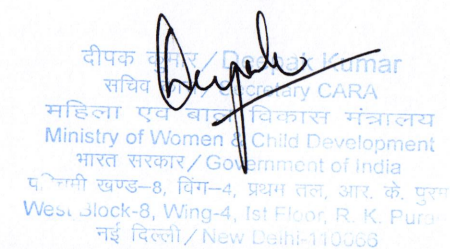 दीपक कुमार / Deepak Kumar
सचिव / Secretary CARA
महिला एवं बाल विकास मंत्रालय
Ministry of Women & Child Development
भारत सरकार / Government of India
पश्चिमी खण्ड–8, विंग–4, प्रथम तल, आर. के. पुरम
West Block-8, Wing-4, Ist Floor, R. K. Pura
नई दिल्ली / New Delhi-110066